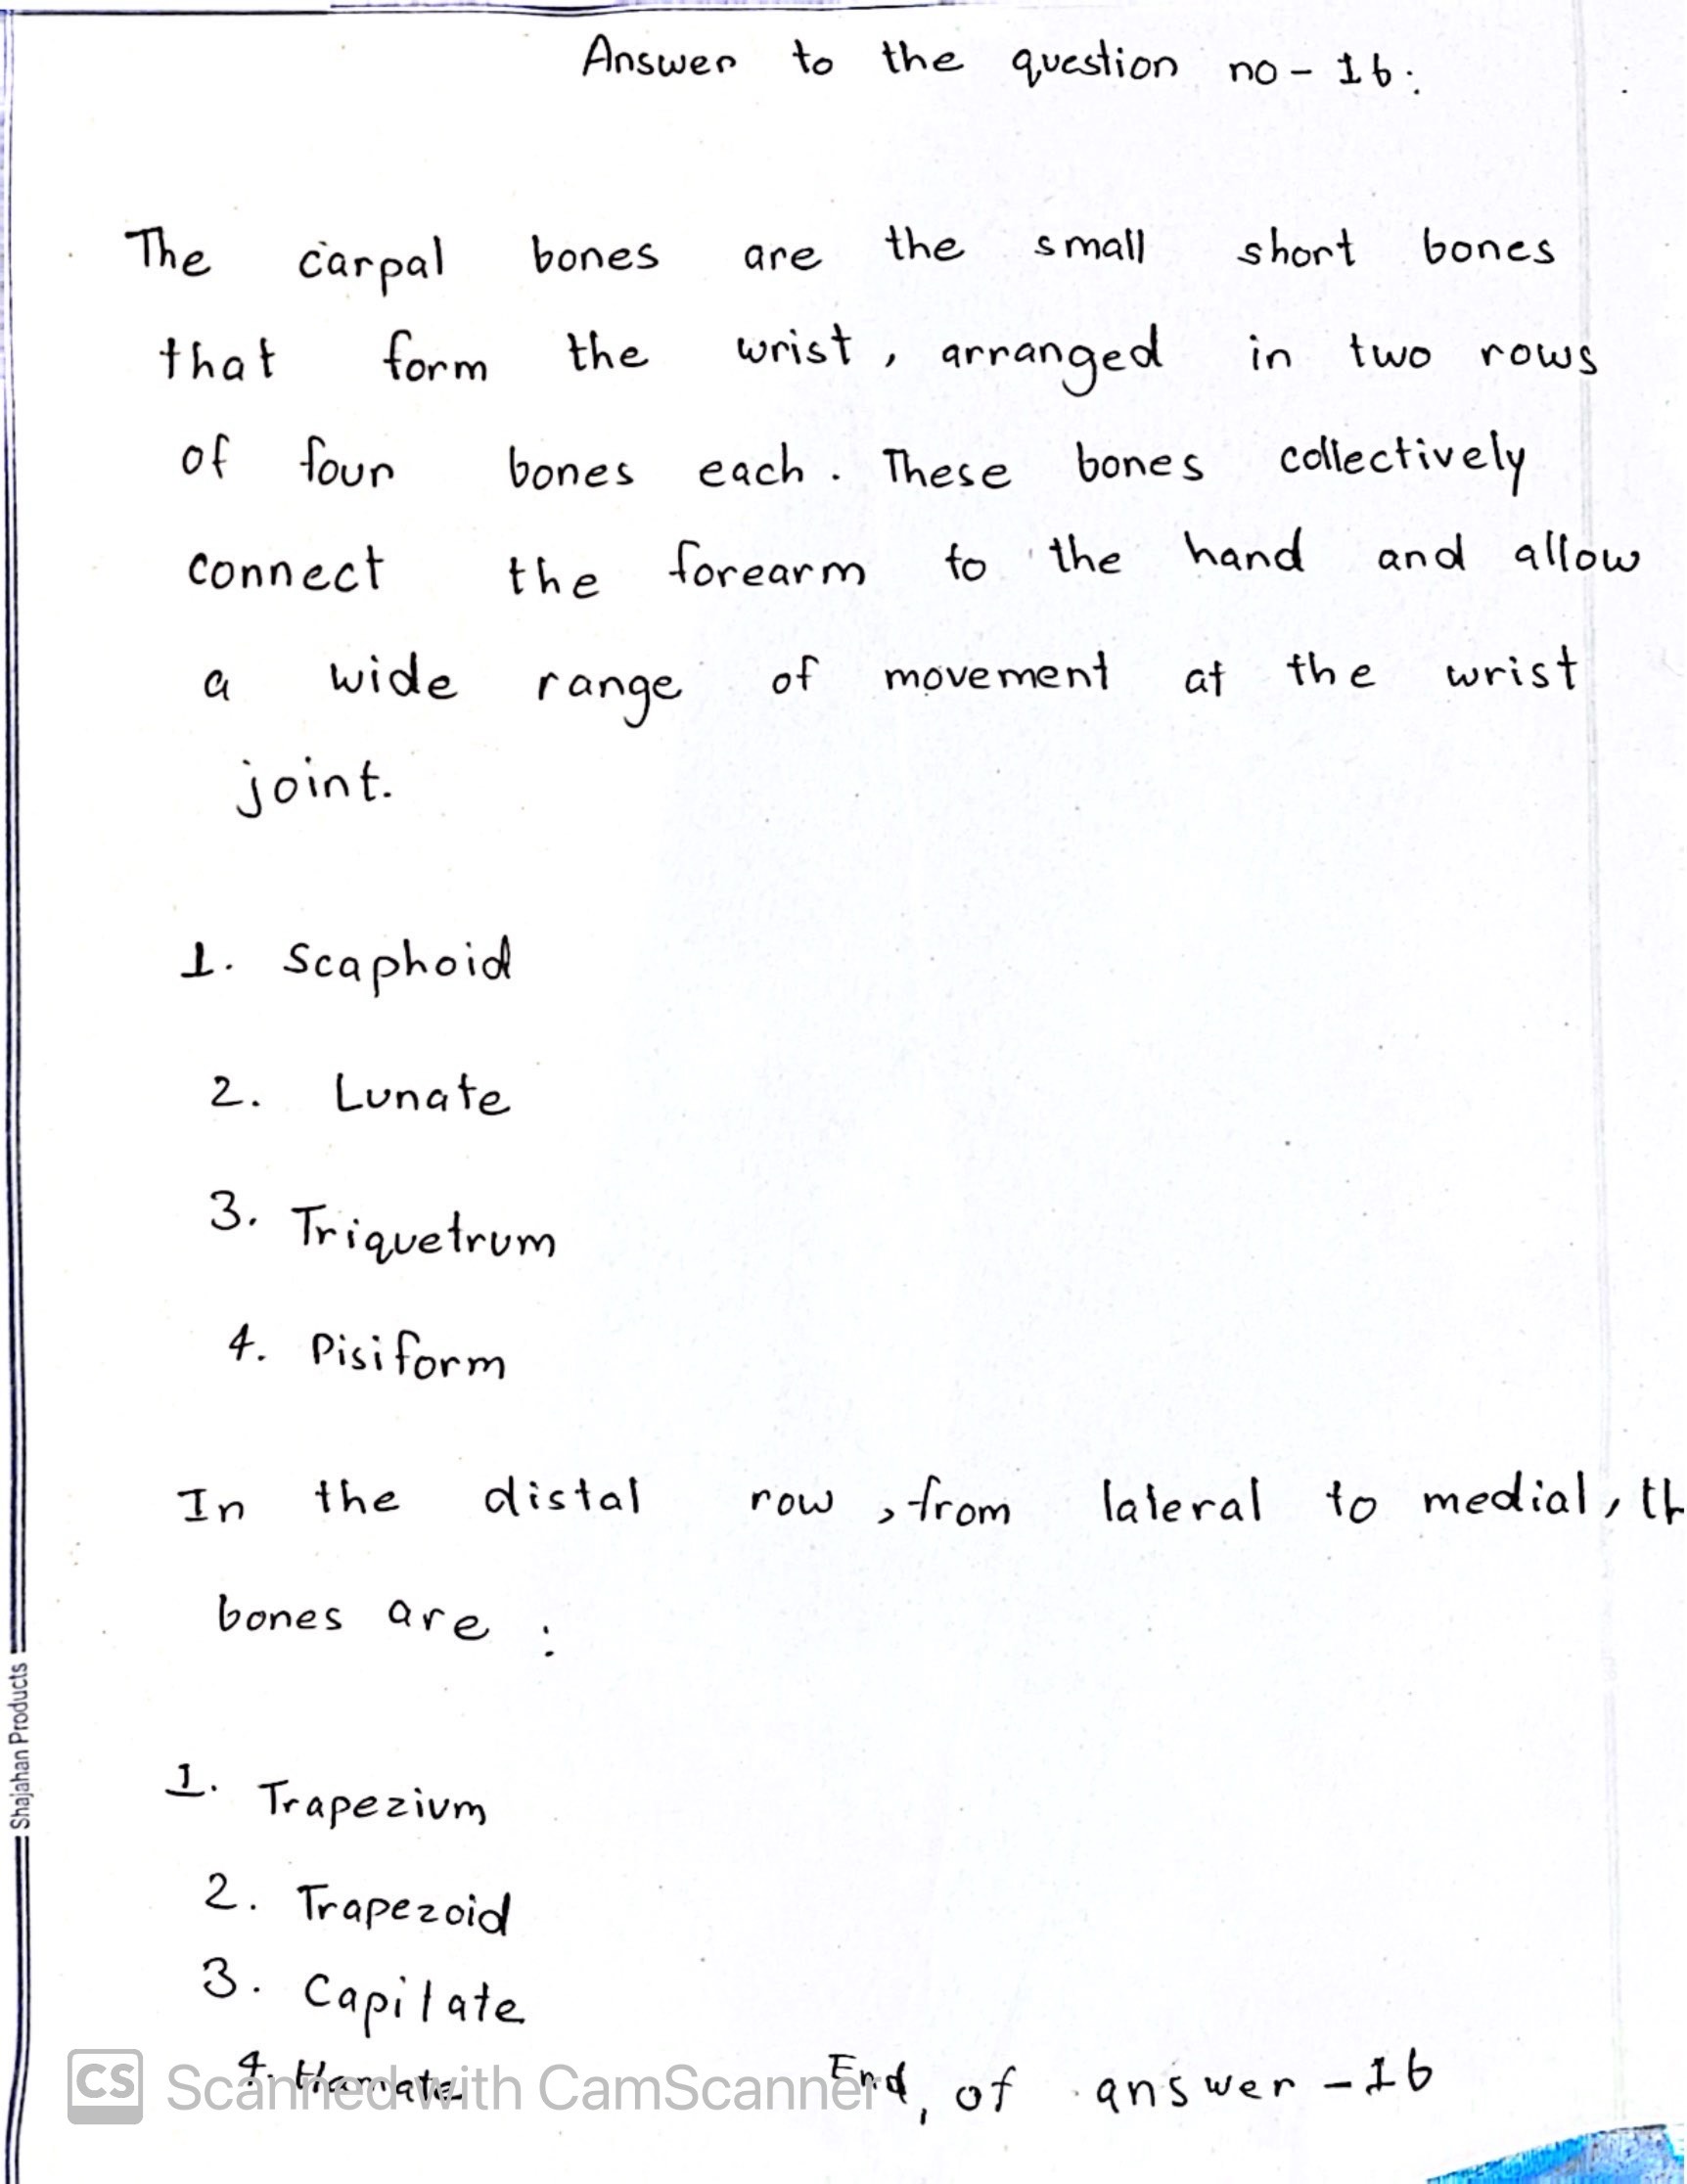 Answer to the question no - 16.
The carpal bones are the small short bones
that form the wrist, arranged in two rows
of four bones each. These bones collectively
connect the forearm to the hand and allow
a wide range of movement at the wrist
joint.
1. Scaphoid
2. Lunate
3. Triquetrum
4. Pisiform
In the distal row, from lateral to medial, th
bones are :
1. Trapezium
2. Trapezoid
3. Capitate
4. Hamate
End, of answer - 16
CS Scanned with CamScanner
Shajahan Products